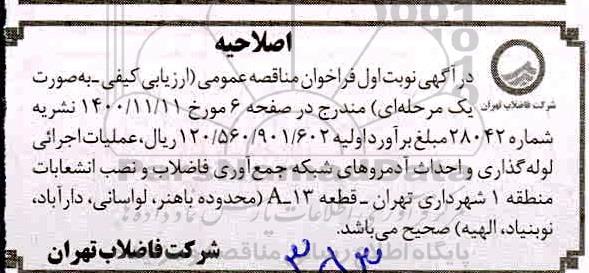 اصلاحیه
در آگهی نوبت اول فراخوان مناقصه عمومی (ارزیابی کیفی -به‌صورت
یک مرحله‌ای) مندرج در صفحه ۶ مورخ ۱۴۰۰/۱۱/۱۱ نشریه
شرکت فاضلاب تهران
شماره ۲۸۰۴۲ مبلغ برآورد اولیه ۱۲۰/۵۶۰/۹۰۱/۶۰۲ ریال، عملیات اجرائی
لوله‌گذاری و احداث آدمروهای شبکه جمع‌آوری فاضلاب و نصب انشعابات
منطقه ۱ شهرداری تهران - قطعه ۱۳-A (محدوده باهنر، لواسانی، دارآباد،
نوبنیاد، الهیه) صحیح می‌باشد.
شرکت فاضلاب تهران